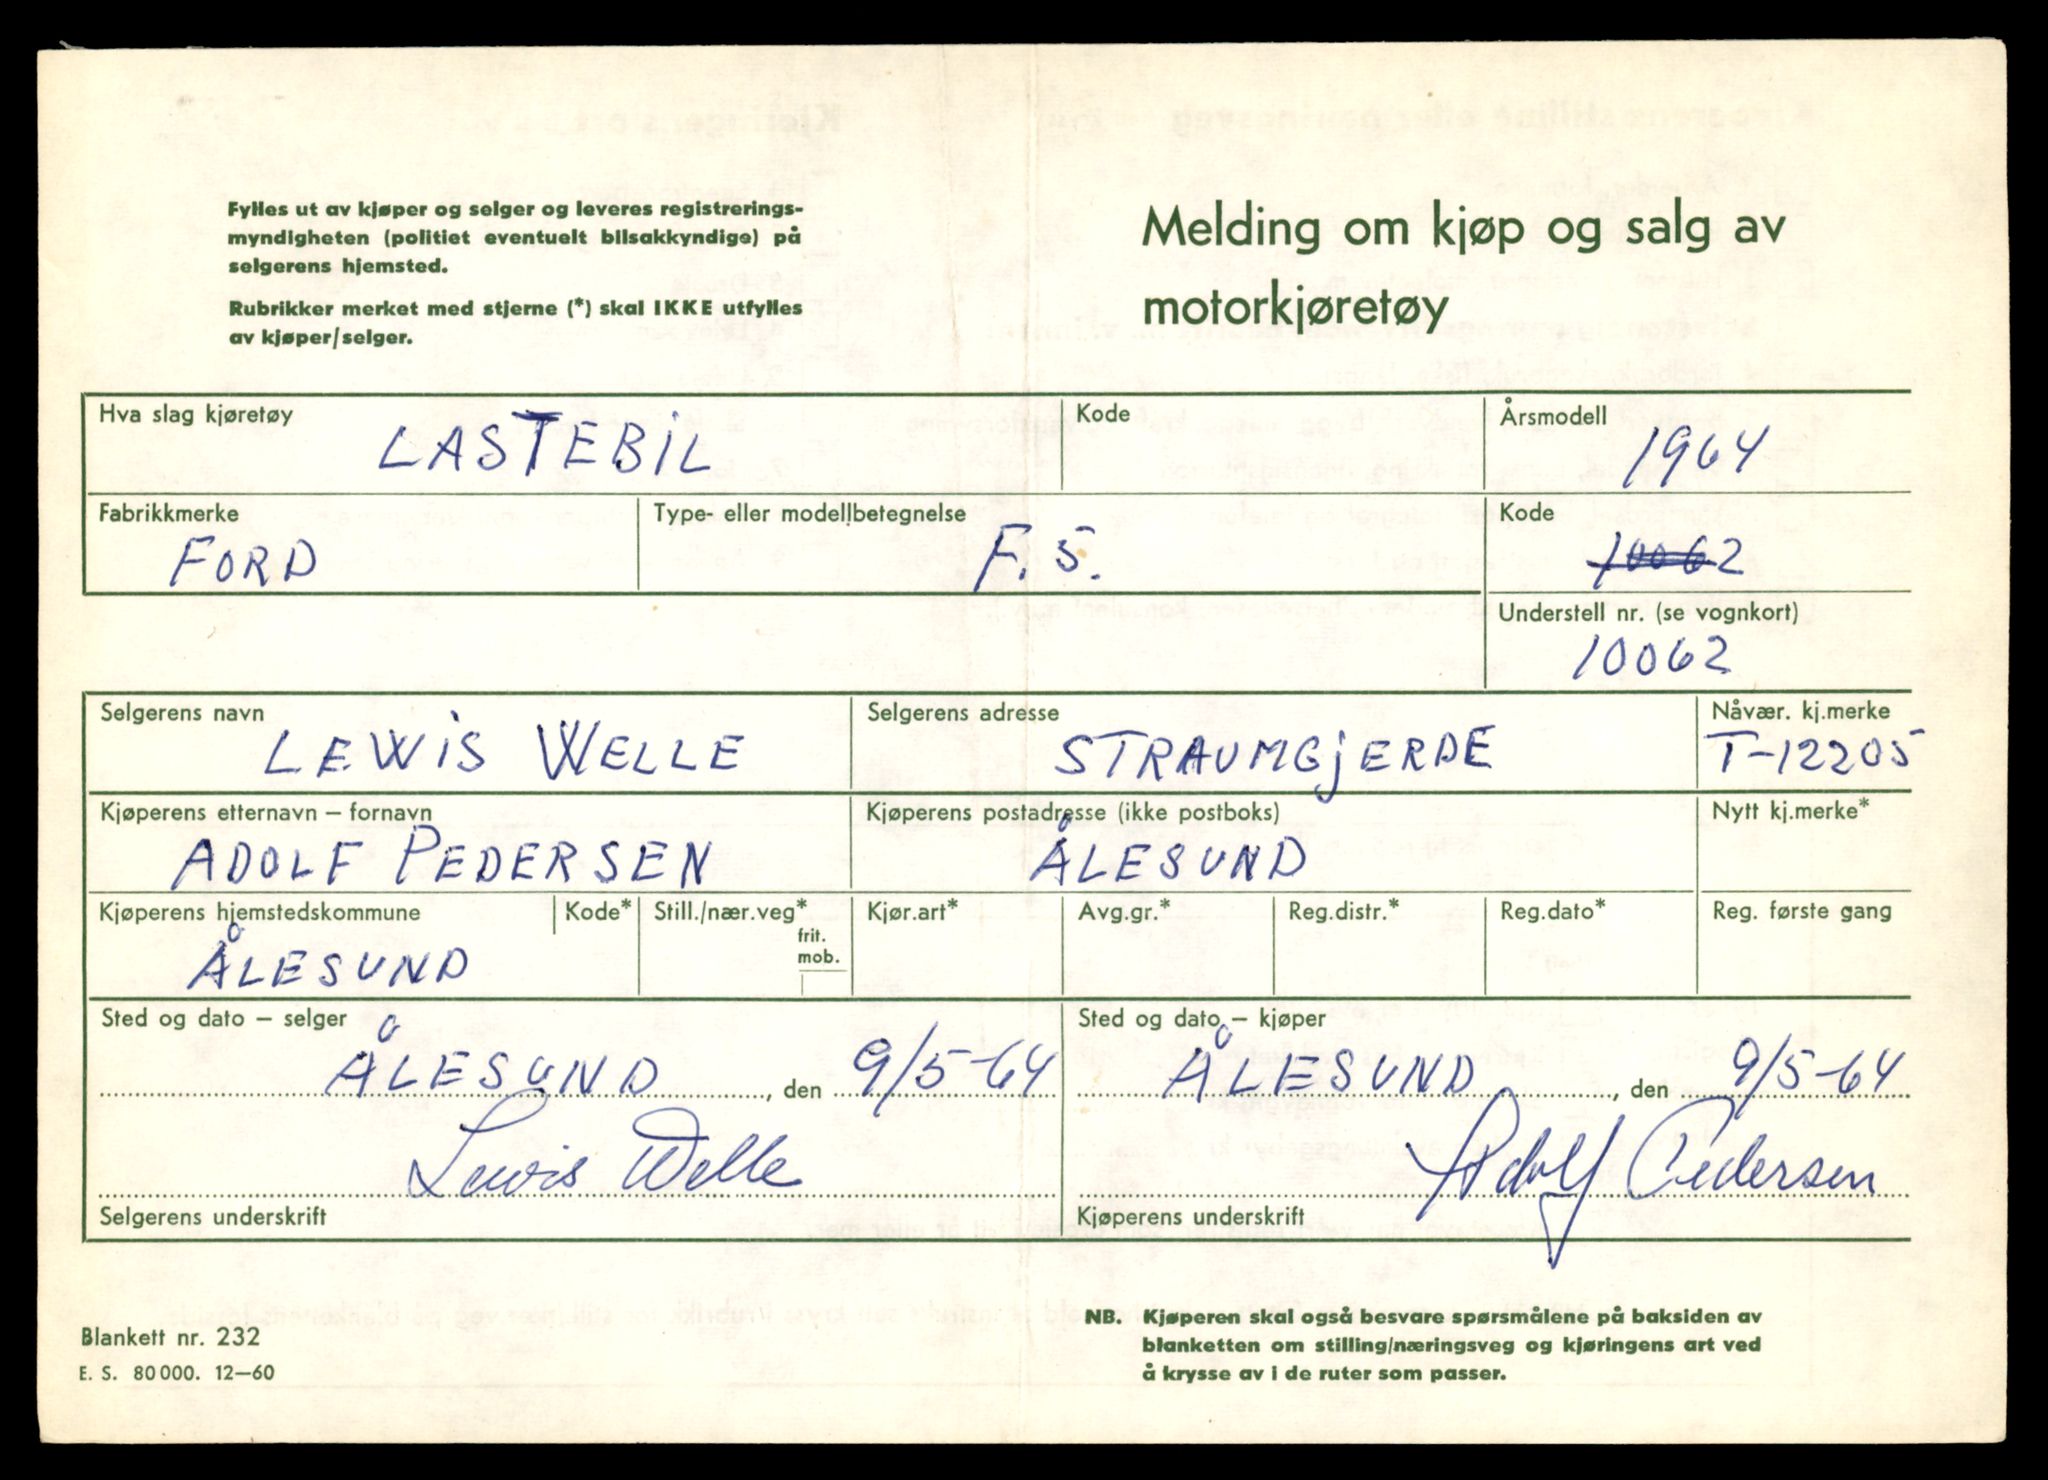 Fylles ut av kjøper og selger og leveres registrerings-
myndigheten (politiet eventuelt bilsakkyndige) på
selgerens hjemsted.
Rubrikker merket med stjerne (*) skal IKKE utfylles
av kjøper/selger.
Melding om kjøp og salg av
motorkjøretøy
Hva slag kjøretøy
LASTEBIL
Kode
Årsmodell
1964
Fabrikkmerke
FORD
Type- eller modellbetegnelse
F. 5.
Kode
10062
Understell nr. (se vognkort)
10062
Selgerens navn
LEWIS WELLE
Selgerens adresse
STRAUMGJERDE
Nåvær. kj.merke
T-12205
Kjøperens etternavn – fornavn
ADOLF PEDERSEN
Kjøperens postadresse (ikke postboks)
ÅLESUND
Nytt kj.merke*
Kjøperens hjemstedskommune
ÅLESUND
Kode*
Still./nær.veg*
frit.
mob.
Kjør.art*
Avg.gr.*
Reg.distr.*
Reg.dato*
Reg. første gang
Sted og dato – selger
ÅLESUND, den 9/5-64
Lewis Welle
Selgerens underskrift
Sted og dato – kjøper
ÅLESUND, den 9/5-64
Adolf Pedersen
Kjøperens underskrift
Blankett nr. 232
E. S. 80 000. 12–60
NB. Kjøperen skal også besvare spørsmålene på baksiden av
blanketten om stilling/næringsveg og kjøringens art ved
å krysse av i de ruter som passer.